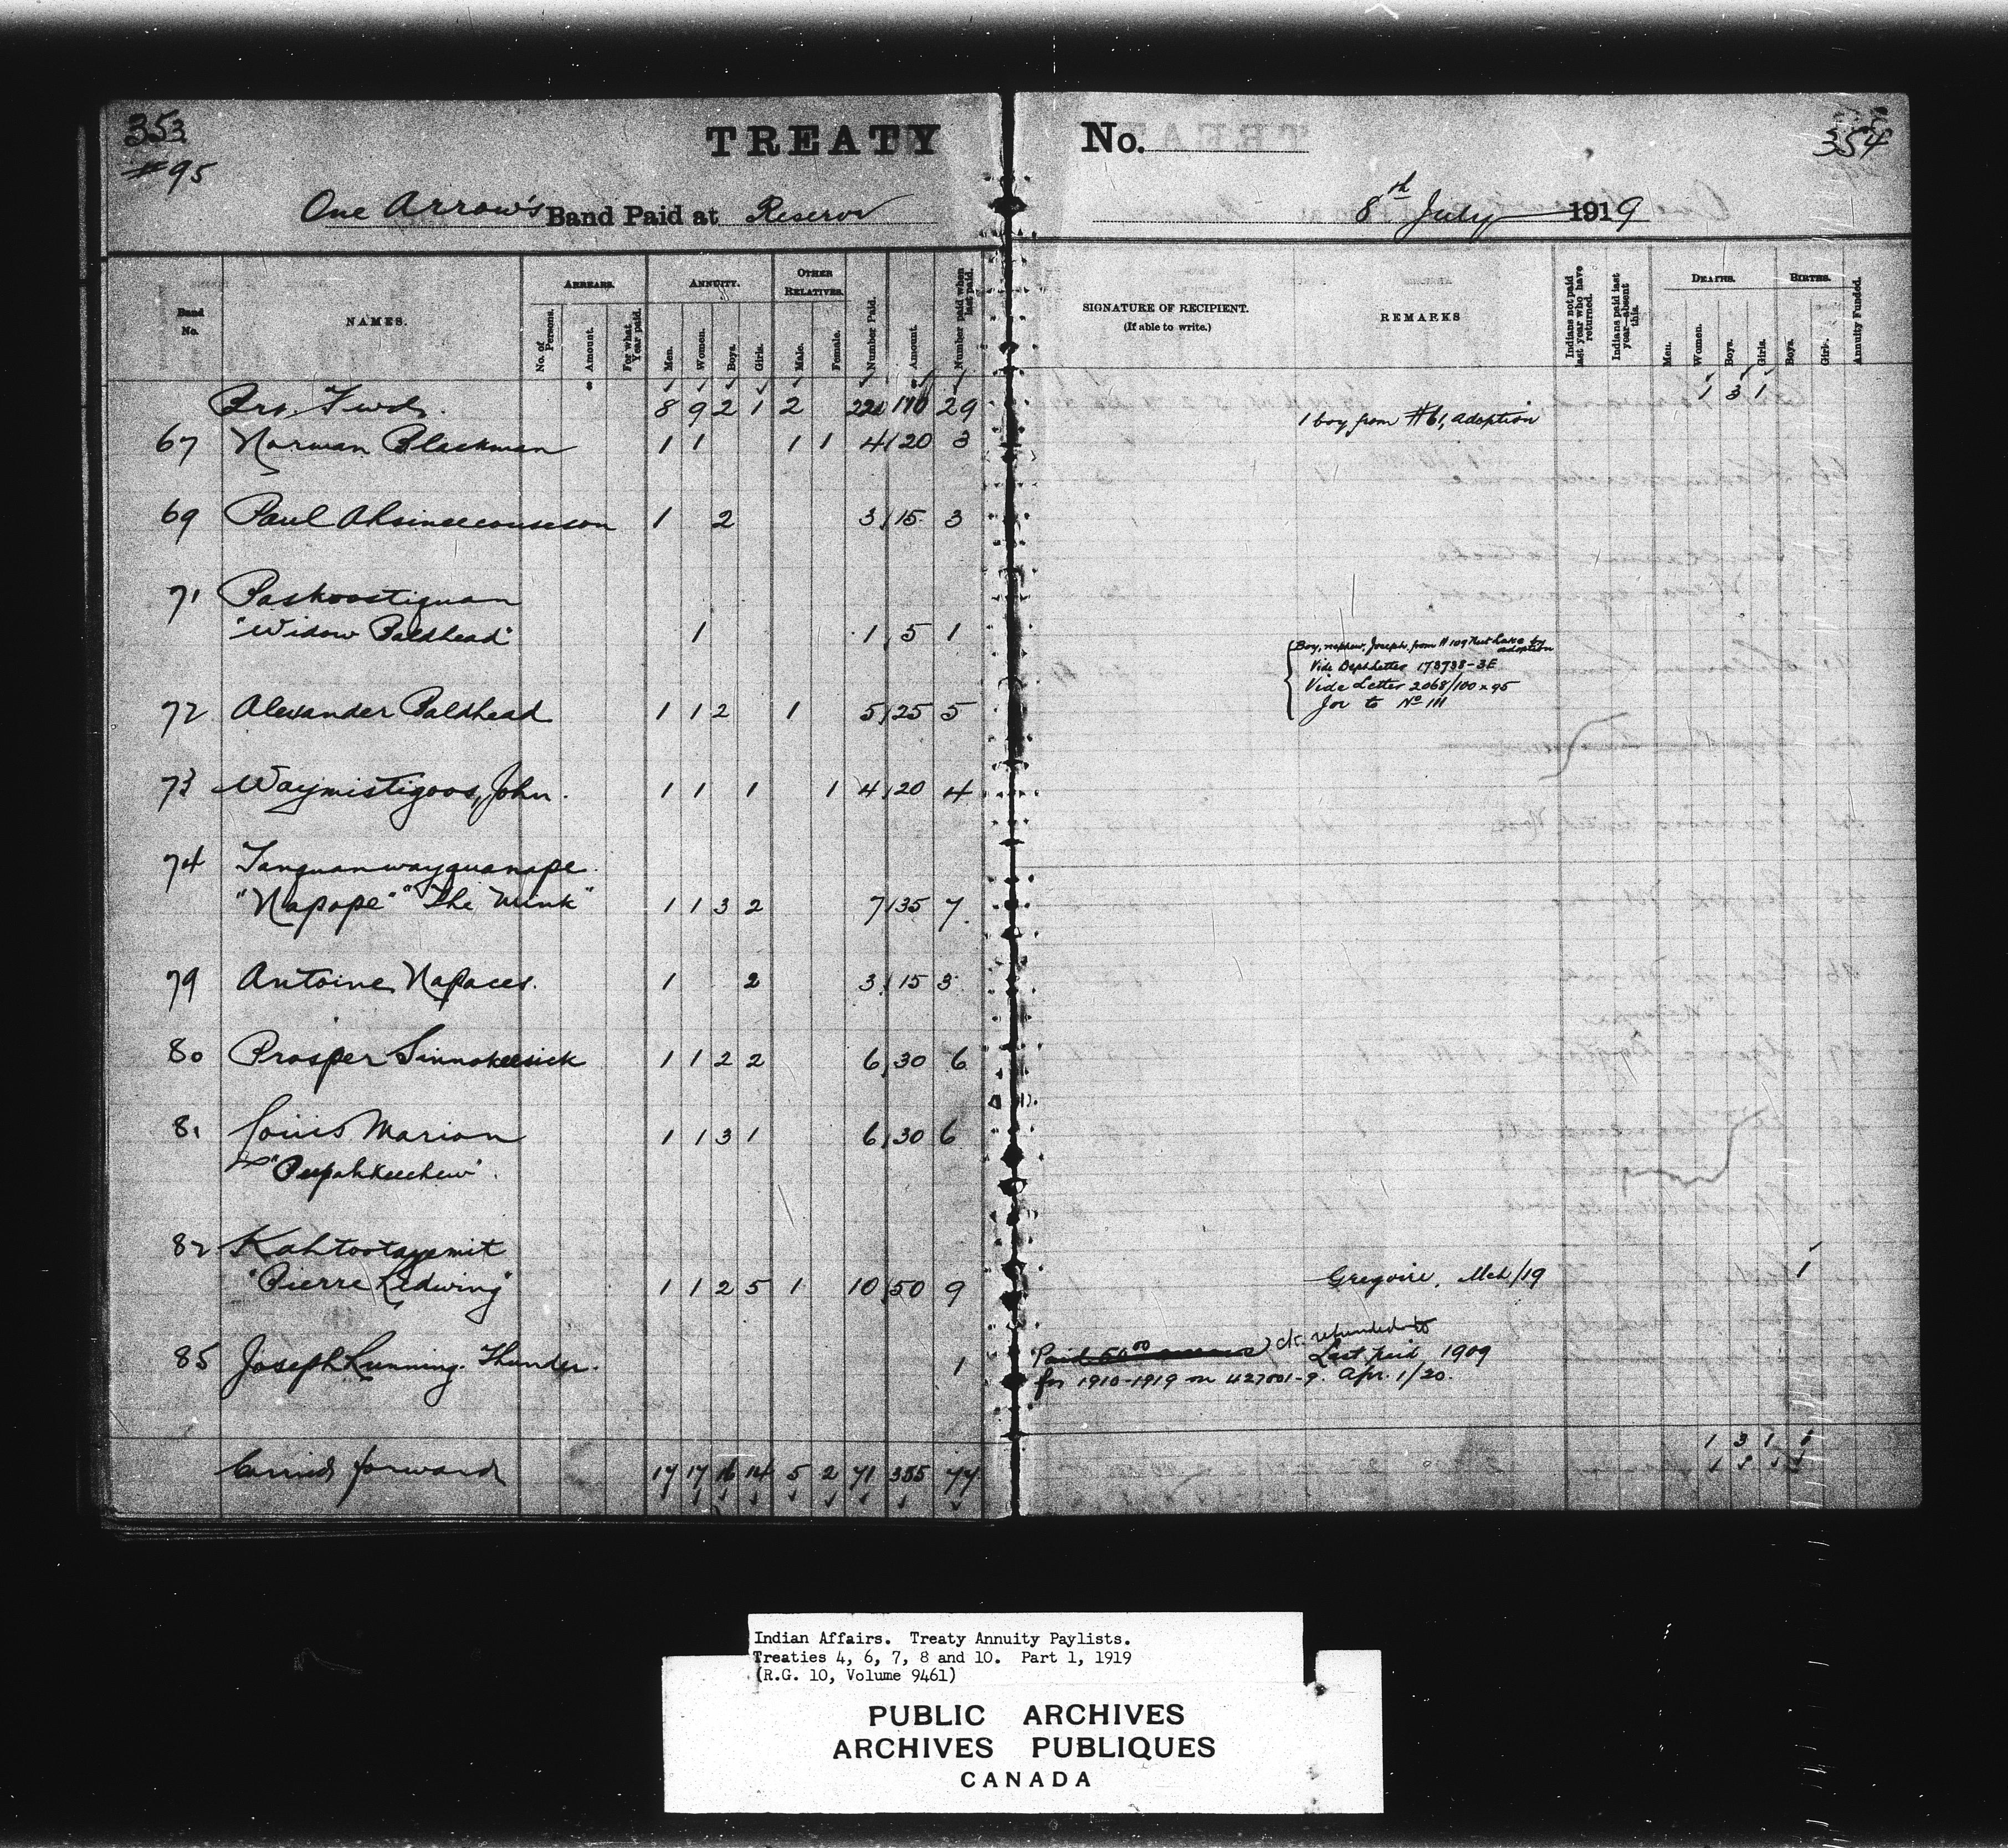 353
#95
TREATY No.
354
One Arrow's Band Paid at Reserve
8th July 1919
Band No.
NAMES.
ARREARS.
No. of Persons.
Amount.
For what Year paid.
ANNUITY.
Men.
Women.
Boys.
Girls.
OTHER RELATIVES.
Male.
Female.
Number Paid.
Amount.
Number paid when last paid.
SIGNATURE OF RECIPIENT.
(If able to write.)
REMARKS
Indians not paid last year who have returned.
Indians paid last year—absent this.
DEATHS.
Men.
Women.
Boys.
Girls.
BIRTHS.
Boys.
Girls.
Annuity Funded.
Bro. Fwd. 8 9 2 1 2 22 110 29 1 3 1
67 Norman Blackman 1 1 1 1 4 20 3 1 boy from #61, adoption
69 Paul 1 2 3 15 3
71 Paskoostiquan
"Widow Baldhead" 1 1 5 1
Boy, nephew, Joseph, from #109 Nut Lake by adoption
Vide Dept Letter 173738-3E
Vide Letter 2068/100 x 95
72 Alexander Baldhead 1 1 2 1 5 25 5 Joe to No 111
73 Waymistigoos, John. 1 1 1 1 4 20 4
74 Tanguanwayquanape.
"Napope" "The Mink" 1 1 3 2 7 35 7
79 Antoine Napaces. 1 2 3 15 3
80 Prosper Sinnokeesick 1 1 2 2 6 30 6
81 Louis Marion 1 1 3 1 6 30 6
"Peepahkeechew".
82 Kahtootagemit
"Pierre Redwing" 1 1 2 5 1 10 50 9 Gregoire, Mch/19 1
85 Joseph Running Thunder. 1 Paid 50.00 arrears ck. refunded to Last paid 1909
for 1910-1919 on 427001-9. Apr. 1/20.
1 3 1 1
Carried forward 17 17 16 14 5 2 71 355 77
Indian Affairs. Treaty Annuity Paylists.
Treaties 4, 6, 7, 8 and 10. Part 1, 1919
(R.G. 10, Volume 9461)
PUBLIC ARCHIVES
ARCHIVES PUBLIQUES
CANADA